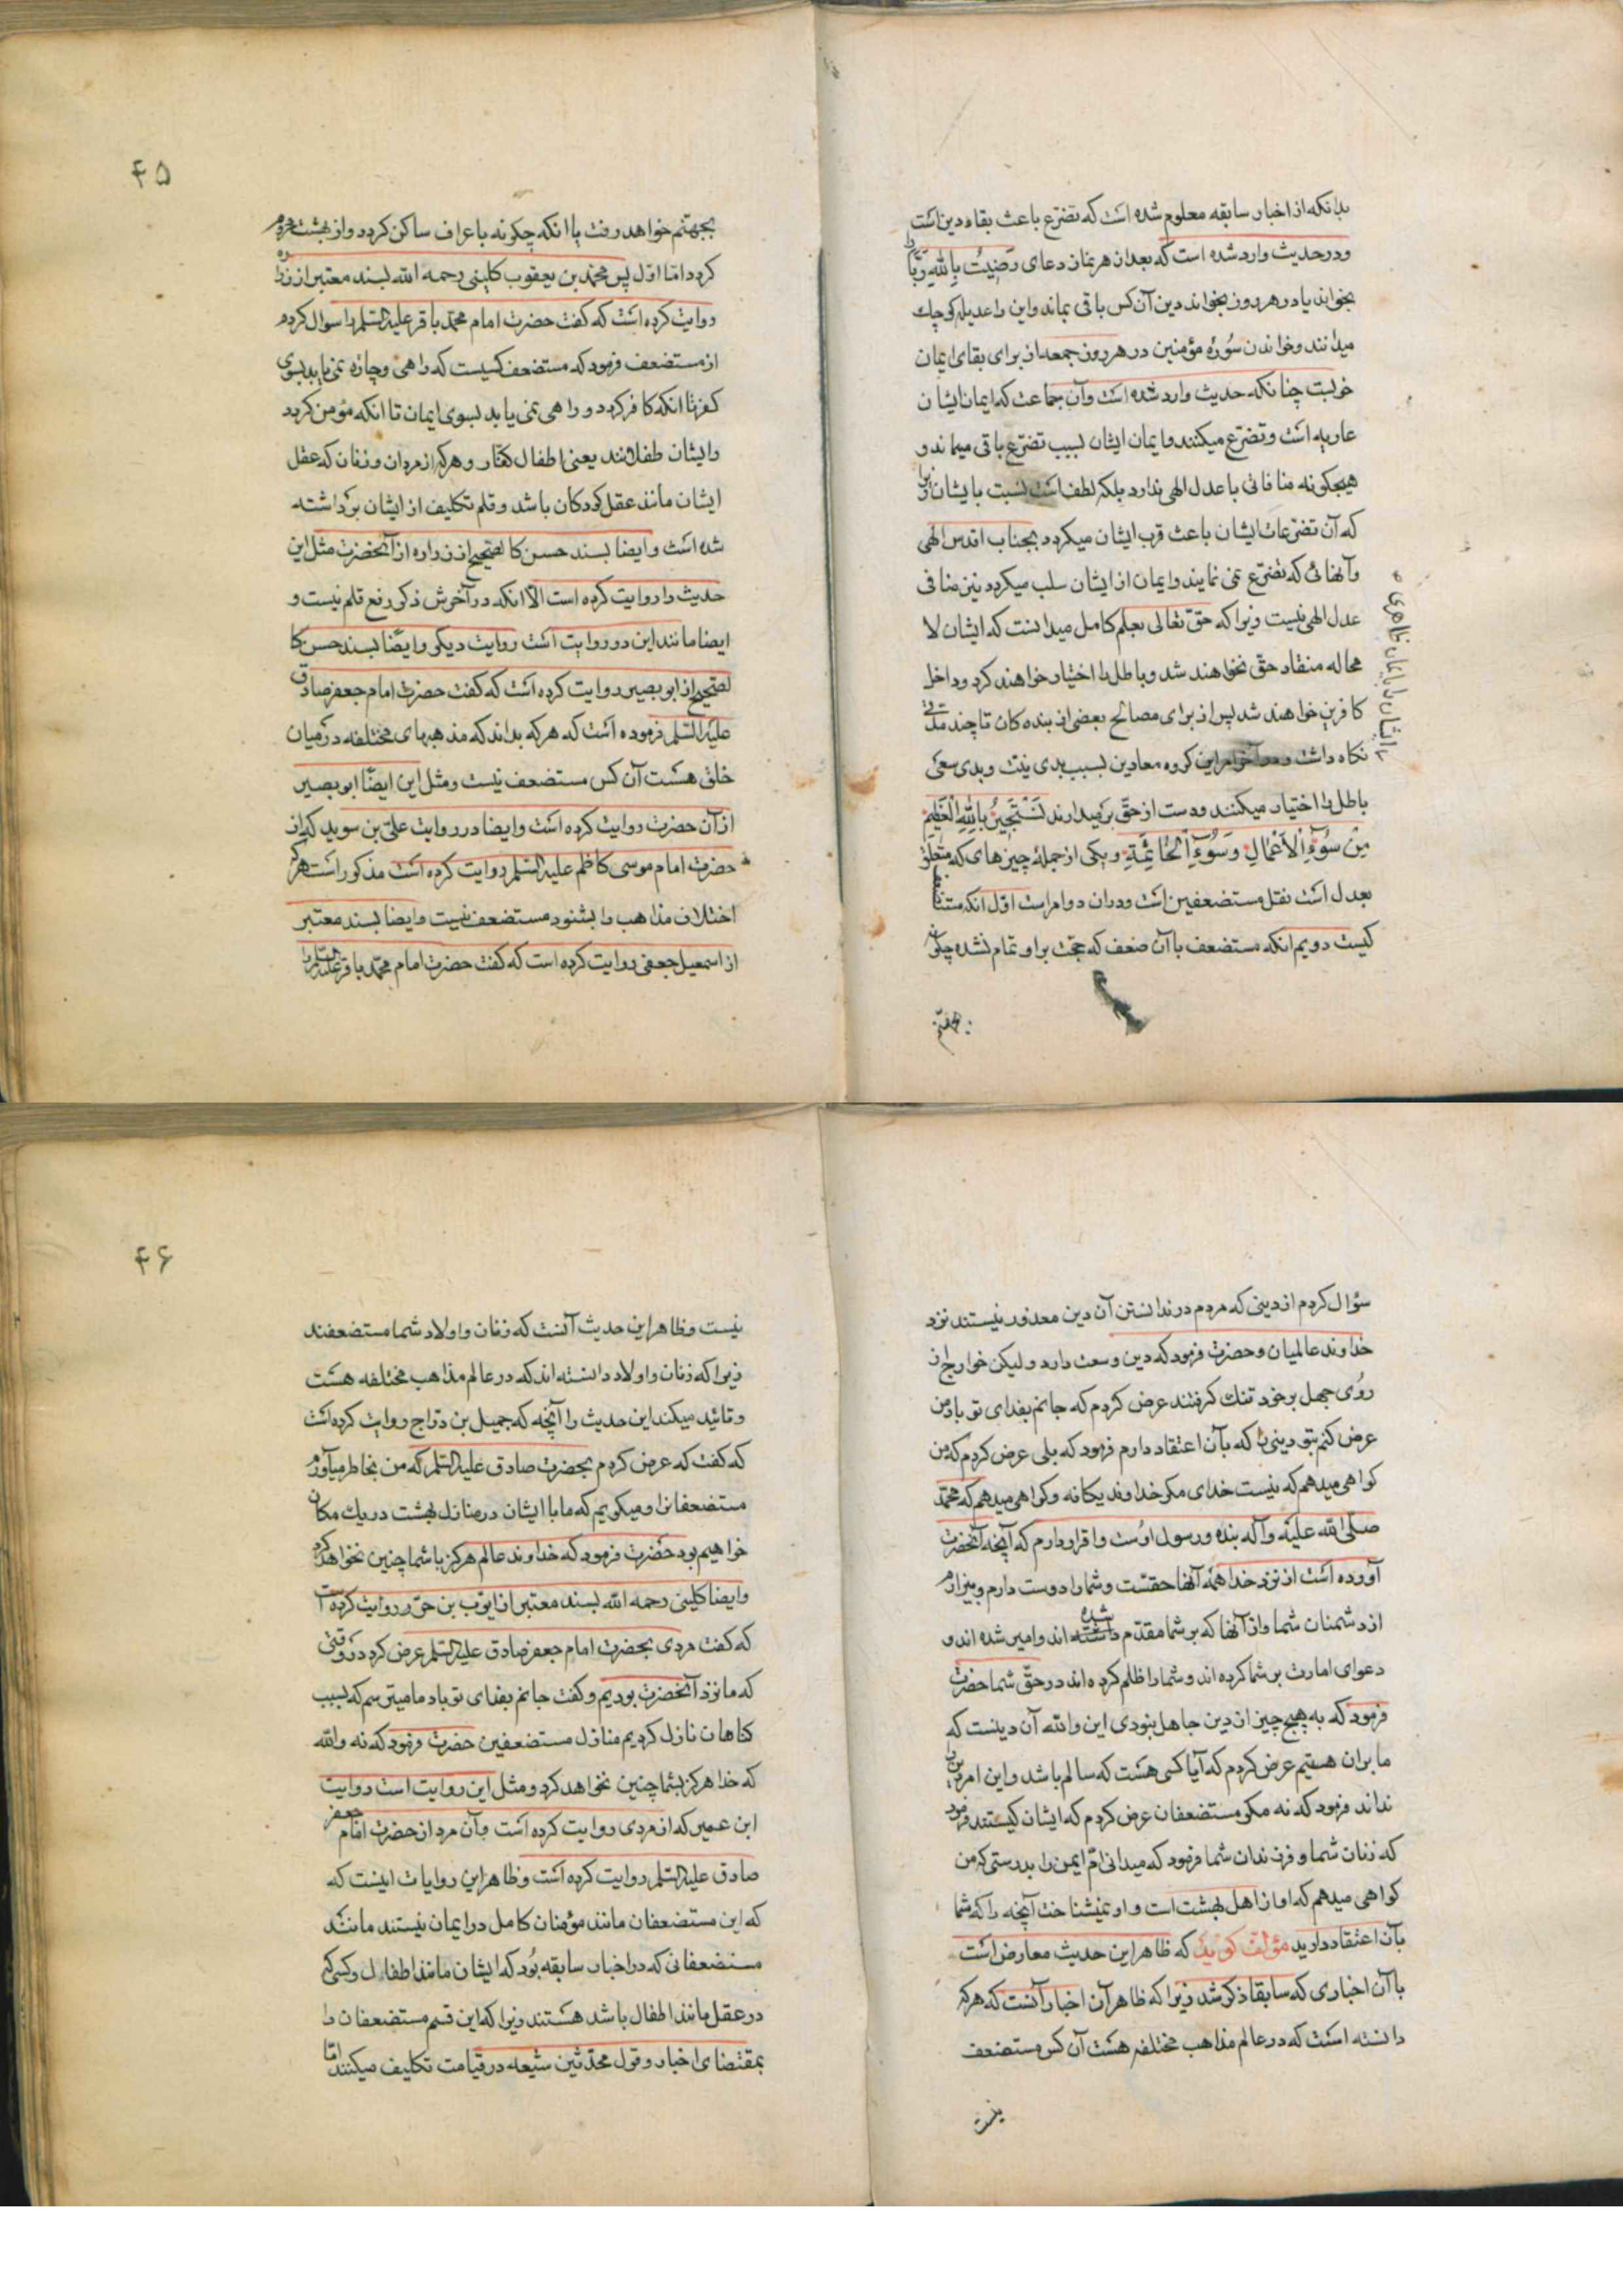 بدانکه از اخبار سابقه معلوم شده است که تضرّع باعث بقاء دین است
و در حدیث وارد شده است که بعد از هر نماز دعای رَضِیتُ بِاللهِ رَبًّا
بخواند یا در هر روز بخواند دین آن کس باقی بماند و این را عدیله کوچک
میدانند و خواندن سُورُه مؤمنین در هر روز جمعه از برای بقای ایمان
خوبست چنانکه حدیث وارد شده است و آن جماعت که ایمان ایشان
عاریه است و تضرّع میکنند و ایمان ایشان بسبب تضرّع باقی میماند و
هیچگونه منافاتی با عدل الهی ندارد بلکه لطف است نسبت بایشان زیرا
که آن تضرّعات ایشان باعث قرب ایشان میکردد بجناب اقدس الهی
و آنهائی که تضرّع نمی نمایند و ایمان از ایشان سلب میکردد نیز منافی
عدل الهی نیست زیرا که حقّ تعالی بعلم کامل میدانست که ایشان لا
محاله منقاد حقّ نخواهند شد و باطل را اختیار خواهند کرد و داخل
کافرین خواهند شد پس از برای مصالح بعضی از بنده کان تا چند مدّتی
ایشان را بایمان ظاهری
نکاه داشت این کروه معاندین بسبب بدی نیّت و بدی سعی
باطل را اختیار میکنند و دست از حقّ بر میدارند نَسْتَجِیرُ بِاللهِ الْعَظِیمِ
مِنْ سُوءِ الْاَعْمَالِ وَسُوءِ الْخَاتِمَةِ و یکی از جملهٔ چیزهای که متعلّق
بعدل است نقل مستضعفین است و در ان دو امر است اوّل انکه مستضعف
کیست دویم انکه مستضعف با آن ضعف که حجّت بر او تمام نشده چکونه
بجهنّم
۴۵
بجهنّم خواهد رفت یا انکه چکونه باعراف ساکن کردد و از بهشت محروم
کردد امّا اوّل پس محمّد بن یعقوب کلینی رحمه الله بسند معتبر از زراره
روایت کرده است که کفت حضرت امام محمّد باقر علیه السّلام را سوال کردم
از مستضعف فرمود که مستضعف کسیست که راهی و چاره نمی یابد بسوی
کفر تا انکه کافر کردد و راهی نمی یابد بسوی ایمان تا انکه مؤمن کردد
و ایشان طفلانند یعنی اطفال کفّار و هر که از مردان و زنان که عقل
ایشان مانند عقل کودکان باشد و قلم تکلیف از ایشان برداشته
شده است و ایضا بسند حسن کالصّحیح از زراره از آنحضرت مثل این
حدیث را روایت کرده است الّا انکه در آخرش ذکر رفع قلم نیست و
ایضا مانند این دو روایت است روایت دیکر و ایضًا بسند حسن کا
لصّحیح از ابو بصیر روایت کرده است که کفت حضرت امام جعفر صادق
علیه السّلام فرموده است که هر که بداند که مذهبهای مختلفه در میان
خلق هست آن کس مستضعف نیست و مثل این ایضًا ابو بصیر
از آن حضرت روایت کرده است و ایضا در روایت علیّ بن سوید که از
حضرت امام موسی کاظم علیه السّلام روایت کرده است مذکور است هر که
اختلاف مذاهب را بشنود مستضعف نیست و ایضا بسند معتبر
از اسمعیل جعفی روایت کرده است که کفت حضرت امام محمّد باقر علیه السّلام را
سؤال کردم از دینی که مردم در ندانستن آن دین معذور نیستند نزد
خداوند عالمیان و حضرت فرمود که دین وسعت دارد و لیکن خوارج از
روُی جهل بر خود تنك کرفتند عرض کردم که جانم بفدای تو باد من
عرض کنم بتو دینی را که بآن اعتقاد دارم فرمود که بلی عرض کردم که من
کواهی میدهم که نیست خدای مکر خداوند یکانه و کواهی میدهم که محمّد
صلّی الله علیه و آله بنده و رسول اوست و اقرار دارم که آنچه آنحضرت
آورده است از نزد خدا همهٔ آنها حقست و شما را دوست دارم و بیزارم
از دشمنان شما و از آنها که بر شما مقدّم شده اند و امیر شده اند و
دعوای امارت بر شما کرده اند و شما را ظلم کرده اند در حقّ شما حضرت
فرمود که به هیچ چیز از دین جاهل نبودی این والله آن دینست که
ما بران هستیم عرض کردم که آیا کسی هست که سالم باشد و این امر دین را
نداند فرمود که نه مکر مستضعفان عرض کردم که ایشان کیستند فرمود
که زنان شما و فرزندان شما فرمود که میدانی امّ ایمن را بدرستی که من
کواهی میدهم که او از اهل بهشت است و او نمیشناخت آنچه را که شما
بآن اعتقاد دارید مؤلّف کوید که ظاهر این حدیث معارض است
با آن اخباری که سابقا ذکر شد زیرا که ظاهر آن اخبار آنست که هر که
دانسته است که در عالم مذاهب مختلفه هست آن کس مستضعف
نیست
۴۶
نیست و ظاهر این حدیث آنست که زنان و اولاد شما مستضعفند
زیرا که زنان و اولاد دانسته اند که در عالم مذاهب مختلفه هست
و تائید میکند این حدیث را آنچه که جمیل بن درّاج روایت کرده است
که کفت که عرض کردم بحضرت صادق علیه السّلام که من بخاطر میآورم
مستضعفانرا و میکویم که ما با ایشان در منازل بهشت در یك مکان
خواهیم بود حضرت فرمود که خداوند عالم هرکز با شما چنین نخواهد کرد
و ایضا کلینی رحمه الله بسند معتبر از ایّوب بن حرّ روایت کرده است
که کفت مردی بحضرت امام جعفر صادق علیه السّلام عرض کرد در وقتی
که ما نزد آنحضرت بودیم و کفت جانم بفدای تو باد ما میترسیم که بسبب
کناهان نازل کردیم منازل مستضعفین حضرت فرمود که نه والله
که خدا هرکز بشما چنین نخواهد کرد و مثل این روایت است روایت
ابن عمیر که از مردی روایت کرده است و آن مرد از حضرت امام جعفر
صادق علیه السّلام روایت کرده است و ظاهر این روایات اینست که
که این مستضعفان مانند مؤمنان کامل در ایمان نیستند مانند
مستضعفانی که در اخبار سابقه بود که ایشان مانند اطفال و کسی که
در عقل مانند اطفال باشد هستند زیرا که این قسم مستضعفان را
بمقتضای اخبار و قول محدّثین شیعه در قیامت تکلیف میکنند امّا